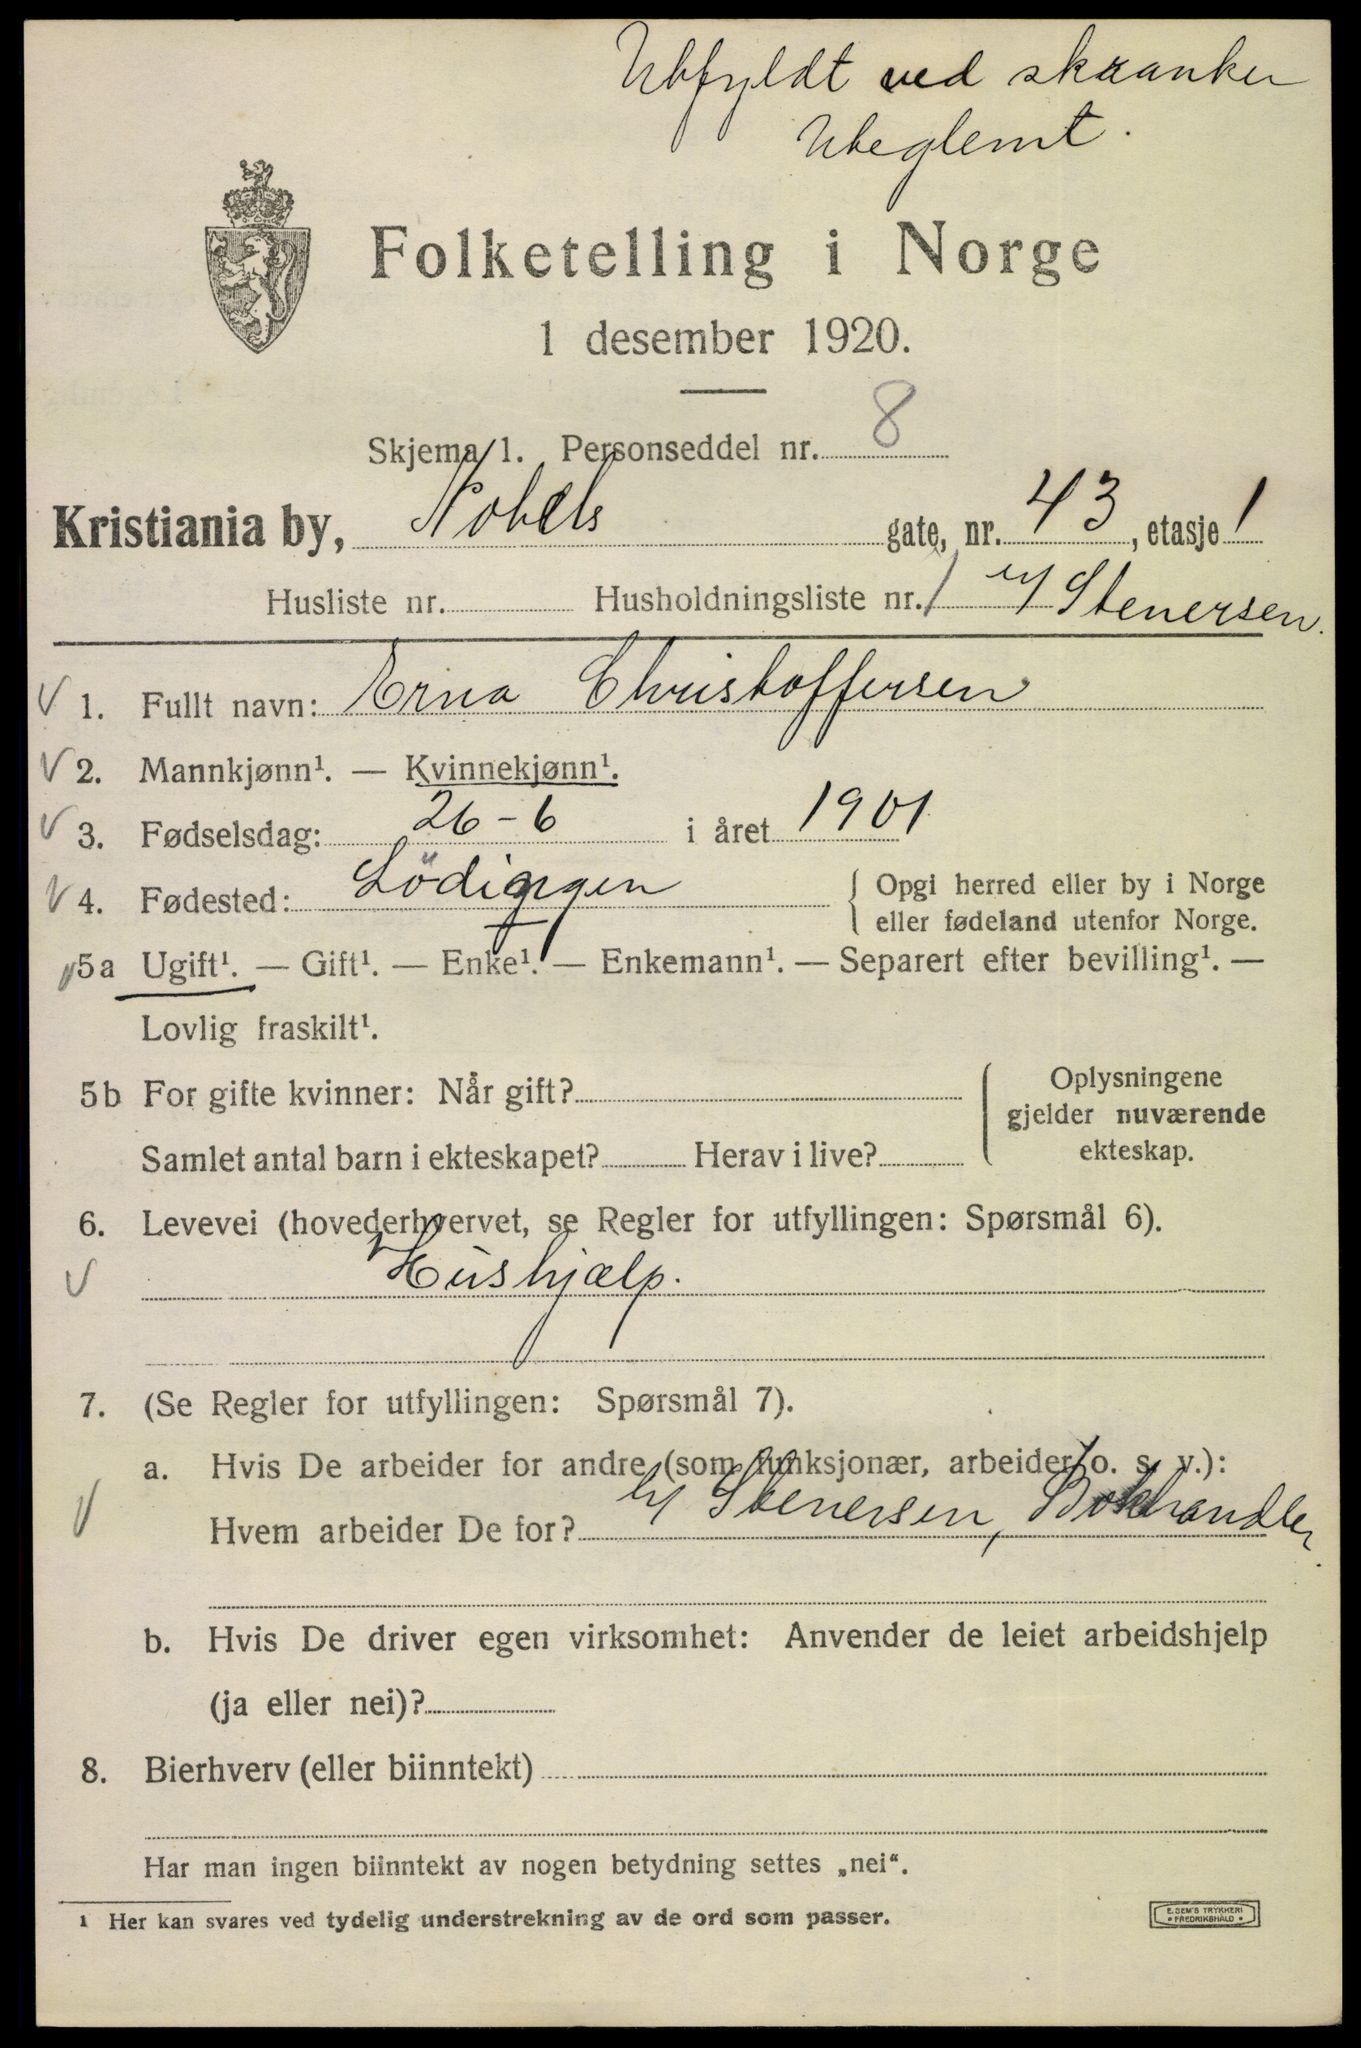 Utfyldt ved skranken
Uteglemt.
Folketelling i Norge
1 desember 1920.
Skjema 1. Personseddel nr. 8
Kristiania by, Nobels gate, nr. 43, etasje 1
Husliste nr. Husholdningsliste nr. 1 v/ Stenersen.
1. Fullt navn: Erna Christoffersen
2. Mannkjønn¹. — Kvinnekjønn¹.
3. Fødselsdag: 26-6 i året 1901
4. Fødested: Lödiggen { Opgi herred eller by i Norge
eller fødeland utenfor Norge.
5a Ugift¹. — Gift¹. — Enke¹. — Enkemann¹. — Separert efter bevilling¹. —
Lovlig fraskilt¹.
5b For gifte kvinner: Når gift? { Oplysningene
gjelder nuværende
Samlet antal barn i ekteskapet? Herav i live? ekteskap.
6. Levevei (hovederhvervet, se Regler for utfyllingen: Spørsmål 6).
Hushjælp.
7. (Se Regler for utfyllingen: Spørsmål 7).
a. Hvis De arbeider for andre (som funksjonær, arbeider o. s. v.):
Hvem arbeider De for? v/ Stenersen, Bokhandler.
b. Hvis De driver egen virksomhet: Anvender de leiet arbeidshjelp
(ja eller nei)?
8. Bierhverv (eller biinntekt)
Har man ingen biinntekt av nogen betydning settes „nei“.
1 Her kan svares ved tydelig understrekning av de ord som passer.
E. SEM'S TRYKKERI
• FREDRIKSHALD •